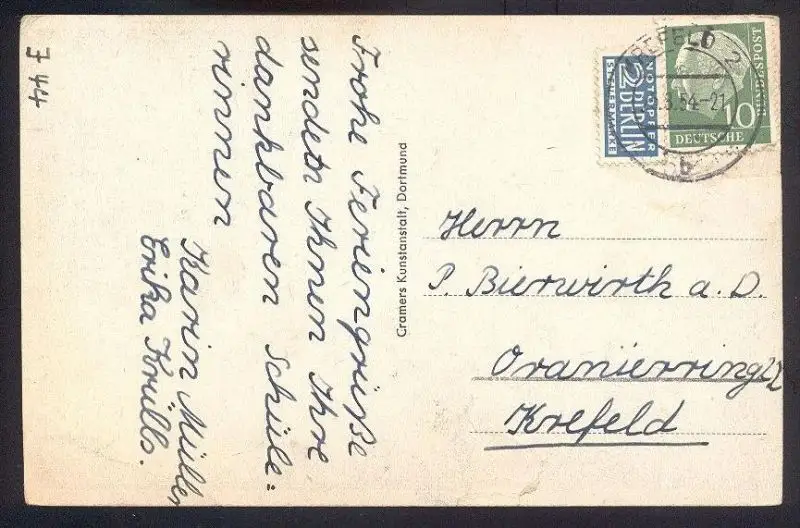 J 44
Frohe Feriengrüße
sendeten Ihnen Ihre
dankbaren Schüle=
rinnen
Karin Müller
Erika Krülls.
Cramers Kunstanstalt, Dortmund
NOTOPFER
2 BERLIN
STEUERMARKE
KREFELD 2
.8.54-21
b
10
DEUTSCHE
BUNDESPOST
Herrn
P. Bierwirth a. D.
Oranierring
Krefeld